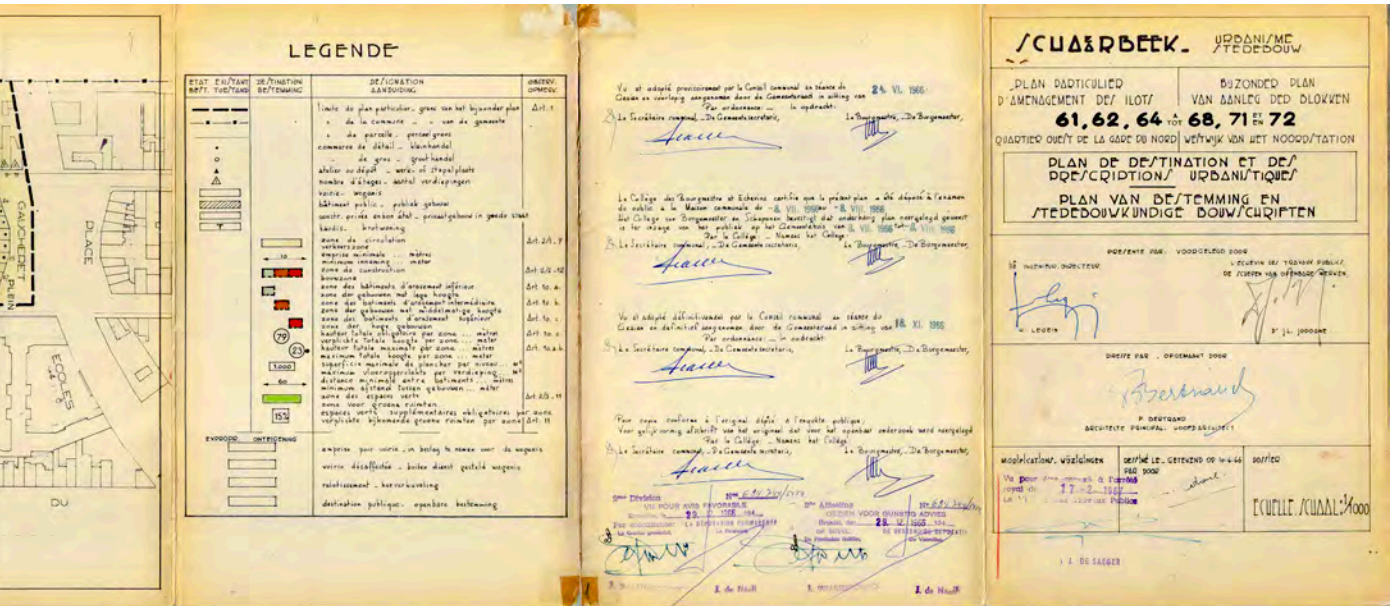 GAUCHERET
PLEIN
PLACE
ECOLES
DU
LEGENDE
ETAT EXISTANT DESTINATION DESIGNATION OBSERV.
BEST. TOESTAND BESTEMMING AANDUIDING OPMERK.
limite du plan particulier _ grens van het bijzonder plan Art. 1
" de la commune _ " van de gemeente
" de parcelle _ perceelgrens
commerce de détail _ kleinhandel
" de gros _ groothandel
atelier ou dépôt _ werk- of stapelplaats
nombre d'étages _ aantal verdiepingen
voirie _ wegenis
bâtiment public _ publiek gebouw
constr. privée en bon état _ privaatgebouw in goede staat
taudis _ krotwoning
zone de circulation
verkeerszone
10 emprise minimale ... mètres
minimum inneming ... meter
zone de construction
bouwzone
zone des bâtiments d'arasement inférieur Art. 10. a.
zone der gebouwen met lage hoogte
zone des batiments d'arasement intermédiaire Art. 10. b.
zone der gebouwen met middelmatige hoogte
zone des batiments d'arasement supérieur Art. 10. c
zone der hoge gebouwen
79 hauteur totale obligatoire par zone ... mètres Art. 10. c
verplichte totale hoogte per zone ... meter
23 hauteur totale maximale par zone ... mètres Art. 10. a.b.
maximum totale hoogte per zone ... meter
1.000 superficie maximale de plancher par niveau ... M²
maximum vloeroppervlakte per verdieping ... M²
60 distance minimale entre batiments ... mètres
minimum afstand tussen gebouwen ... meter
zone des espaces verts Art. 2/3 _ 11
zone voor groene ruimten
15% espaces verts supplémentaires obligatoires par zone
verplichte bijkomende groene ruimten per zone Art. 11
EXPROPR. ONTEIGENING
emprise pour voirie _ in beslag te nemen voor de wegenis
voirie désaffectée _ buiten dienst gesteld wegenis
relotissement _ herverkaveling
destination publique _ openbare bestemming
Vu et adopté provisoirement par le Conseil communal en séance de
Gezien en voorlopig aangenomen door de Gemeenteraad in zitting van 24. VI. 1966
Par ordonnance: _ In opdracht:
Le Secrétaire communal, _ De Gemeentesecretaris, Le Bourgmestre, _ De Burgemeester,
Le Collège des Bourgmestre et Echevins certifie que le présent plan a été déposé à l'examen
du public à la Maison communale du -8. VII. 1966 au -8. VIII. 1966
Het College van Burgemeester en Schepenen bevestigt dat onderhavig plan neergelegd geweest
is ter inzage van het publiek op het Gemeentehuis van -8. VII. 1966 tot -8. VIII. 1966
Par le Collège: _ Namens het College:
Le Secrétaire communal, _ De Gemeentesecretaris, Le Bourgmestre, _ De Burgemeester,
Vu et adopté définitivement par le Conseil communal en séance du
Gezien en definitief aangenomen door de Gemeenteraad in zitting van 18. XI. 1966
Par ordonnance: _ in opdracht:
Le Secrétaire communal, _ De Gemeentesecretaris, Le Bourgmestre, _ De Burgemeester,
Pour copie conforme à l'original déposé à l'enquête publique:
Voor gelijkvormig afschrift van het origineel dat voor het openbaar onderzoek werd neergelegd
Par le Collège: _ Namens het College:
Le Secrétaire communal, _ De Gemeentesecretaris, Le Bourgmestre, _ De Burgemeester,
VU POUR AVIS FAVORABLE
29. 12. 1966
LA DEPUTATION PERMANENTE
GEZIEN VOOR GUNSTIG ADVIES
Brussel, de 29. 12. 1966
DE BESTENDIGE DEPUTATIE
J. de Néeff
J. de Néeff
SCHAERBEEK_ URBANISME
STEDEBOUW
PLAN PARTICULIER
D'AMENAGEMENT DES ILOTS
BIJZONDER PLAN
VAN AANLEG DER BLOKKEN
61, 62, 64 TOT 68, 71 ET EN 72
QUARTIER OUEST DE LA GARE DU NORD WESTWIJK VAN HET NOORDSTATION
PLAN DE DESTINATION ET DES
PRESCRIPTIONS URBANISTIQUES
PLAN VAN BESTEMMING EN
STEDEBOUWKUNDIGE BOUWSCHRIFTEN
PRESENTE PAR. VOORGELEGD DOOR
INGENIEUR. DIRECTEUR
L'ECHEVIN DES TRAVAUX PUBLICS,
DE SCHEPEN VAN OPENBARE WERKEN,
DRESSE PAR . OPGEMAAKT DOOR
P. BERTRAND
ARCHITECTE PRINCIPAL. HOOFDARCHITECT
MODIFICATIONS. WIJZIGINGEN
DESSINÉ LE _ GETEKEND OP 10-6-66
PAR DOOR
DOSSIER
Vu pour être annexé à l'arrêté
royal du 17-2-1967
ECHELLE. SCHAAL: 1/1000
J. DE SAEGER